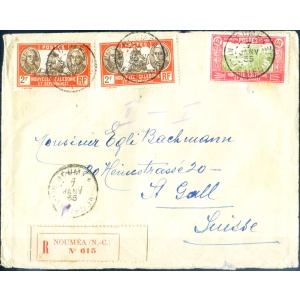 POSTES
2F NOUVELLE-CALÉDONIE RF
ET DÉPENDANCES
POSTES
2F NOUVELLE-CALÉDONIE RF
ET DÉPENDANCES
7
JANV
35
Monsieur Egli Bachmann
20 Heinestrasse 20
St Gall
Suisse
NOUMEA
7
JANV
35
R
NOUMÉA (N.-C.)
N° 615